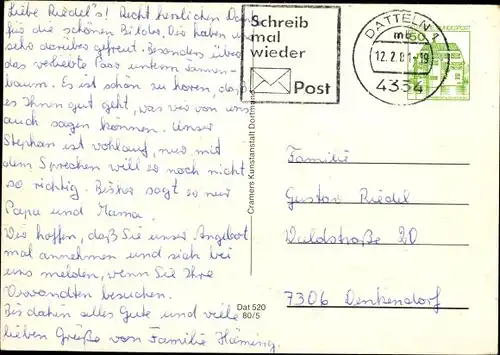 Liebe Riedel's! Recht herzlichen Dank
für die schönen Bilder. Wir haben uns
sehr darüber gefreut. Besonders über
das verliebte Paar unterm Tannen-
baum. Es ist schön zu hören, daß
es Ihnen gut geht, was wir von uns
auch sagen können. Unser
Stephan ist wohlauf, nur mit
dem Sprechen will er noch nicht
so richtig. Bisher sagt er nur
Papa und Mama.
Wir hoffen, daß Sie unser Angebot
mal annehmen und sich bei
uns melden, wenn Sie Ihre
Verwandten besuchen.
Bis dahin alles Gute und viele
lieben Grüße von Familie Häming.
Schreib
mal
wieder
Post
DATTELN 1
mb
12.2.81-19
4354
60
BUNDESPOST
Cramers Kunstanstalt Dortmund
Dat 520
80/5
Familie
Gustav Riedel
Waldstraße 20
7306 Denkendorf